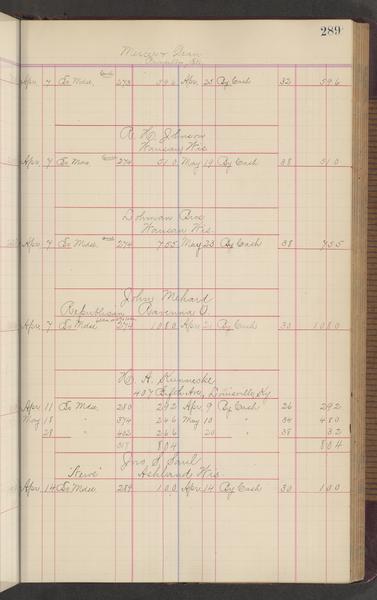 289
Mercer & Dean
Apr. 7 To Mdse. 273 5 9 6 Apr. 25 By Cash 32 5 9 6
R. H. Johnson
Wausau Wis
Apr. 7 To Mdse 274 5 1 0 May 19 By Cash 38 5 1 0
Lohman Bros
Wausau Wis.
Apr. 7 To Mdse. 274 7 5 5 May 23 By Cash 38 7 5 5
John Mehart
Republican Ravenna O.
Apr. 7 To Mdse 274 10 8 0 Apr. 21 By Cash 30 10 8 0
H. A. Kunneske
407 Fifth Ave, Louisville, Ky
Apr. 11 To Mdse 280 2 9 2 Apr. 9 By Cash 26 2 9 2
May 18 " 374 2 4 6 May 10 " 34 4 8 0
28 " 402 2 6 6 20 " 38 3 2
317 8 0 4 8 0 4
Jno. S. Saul
"News" Ashland Wis
Apr. 14 To Mdse 284 1 0 0 Apr. 14 By Cash 30 1 0 0